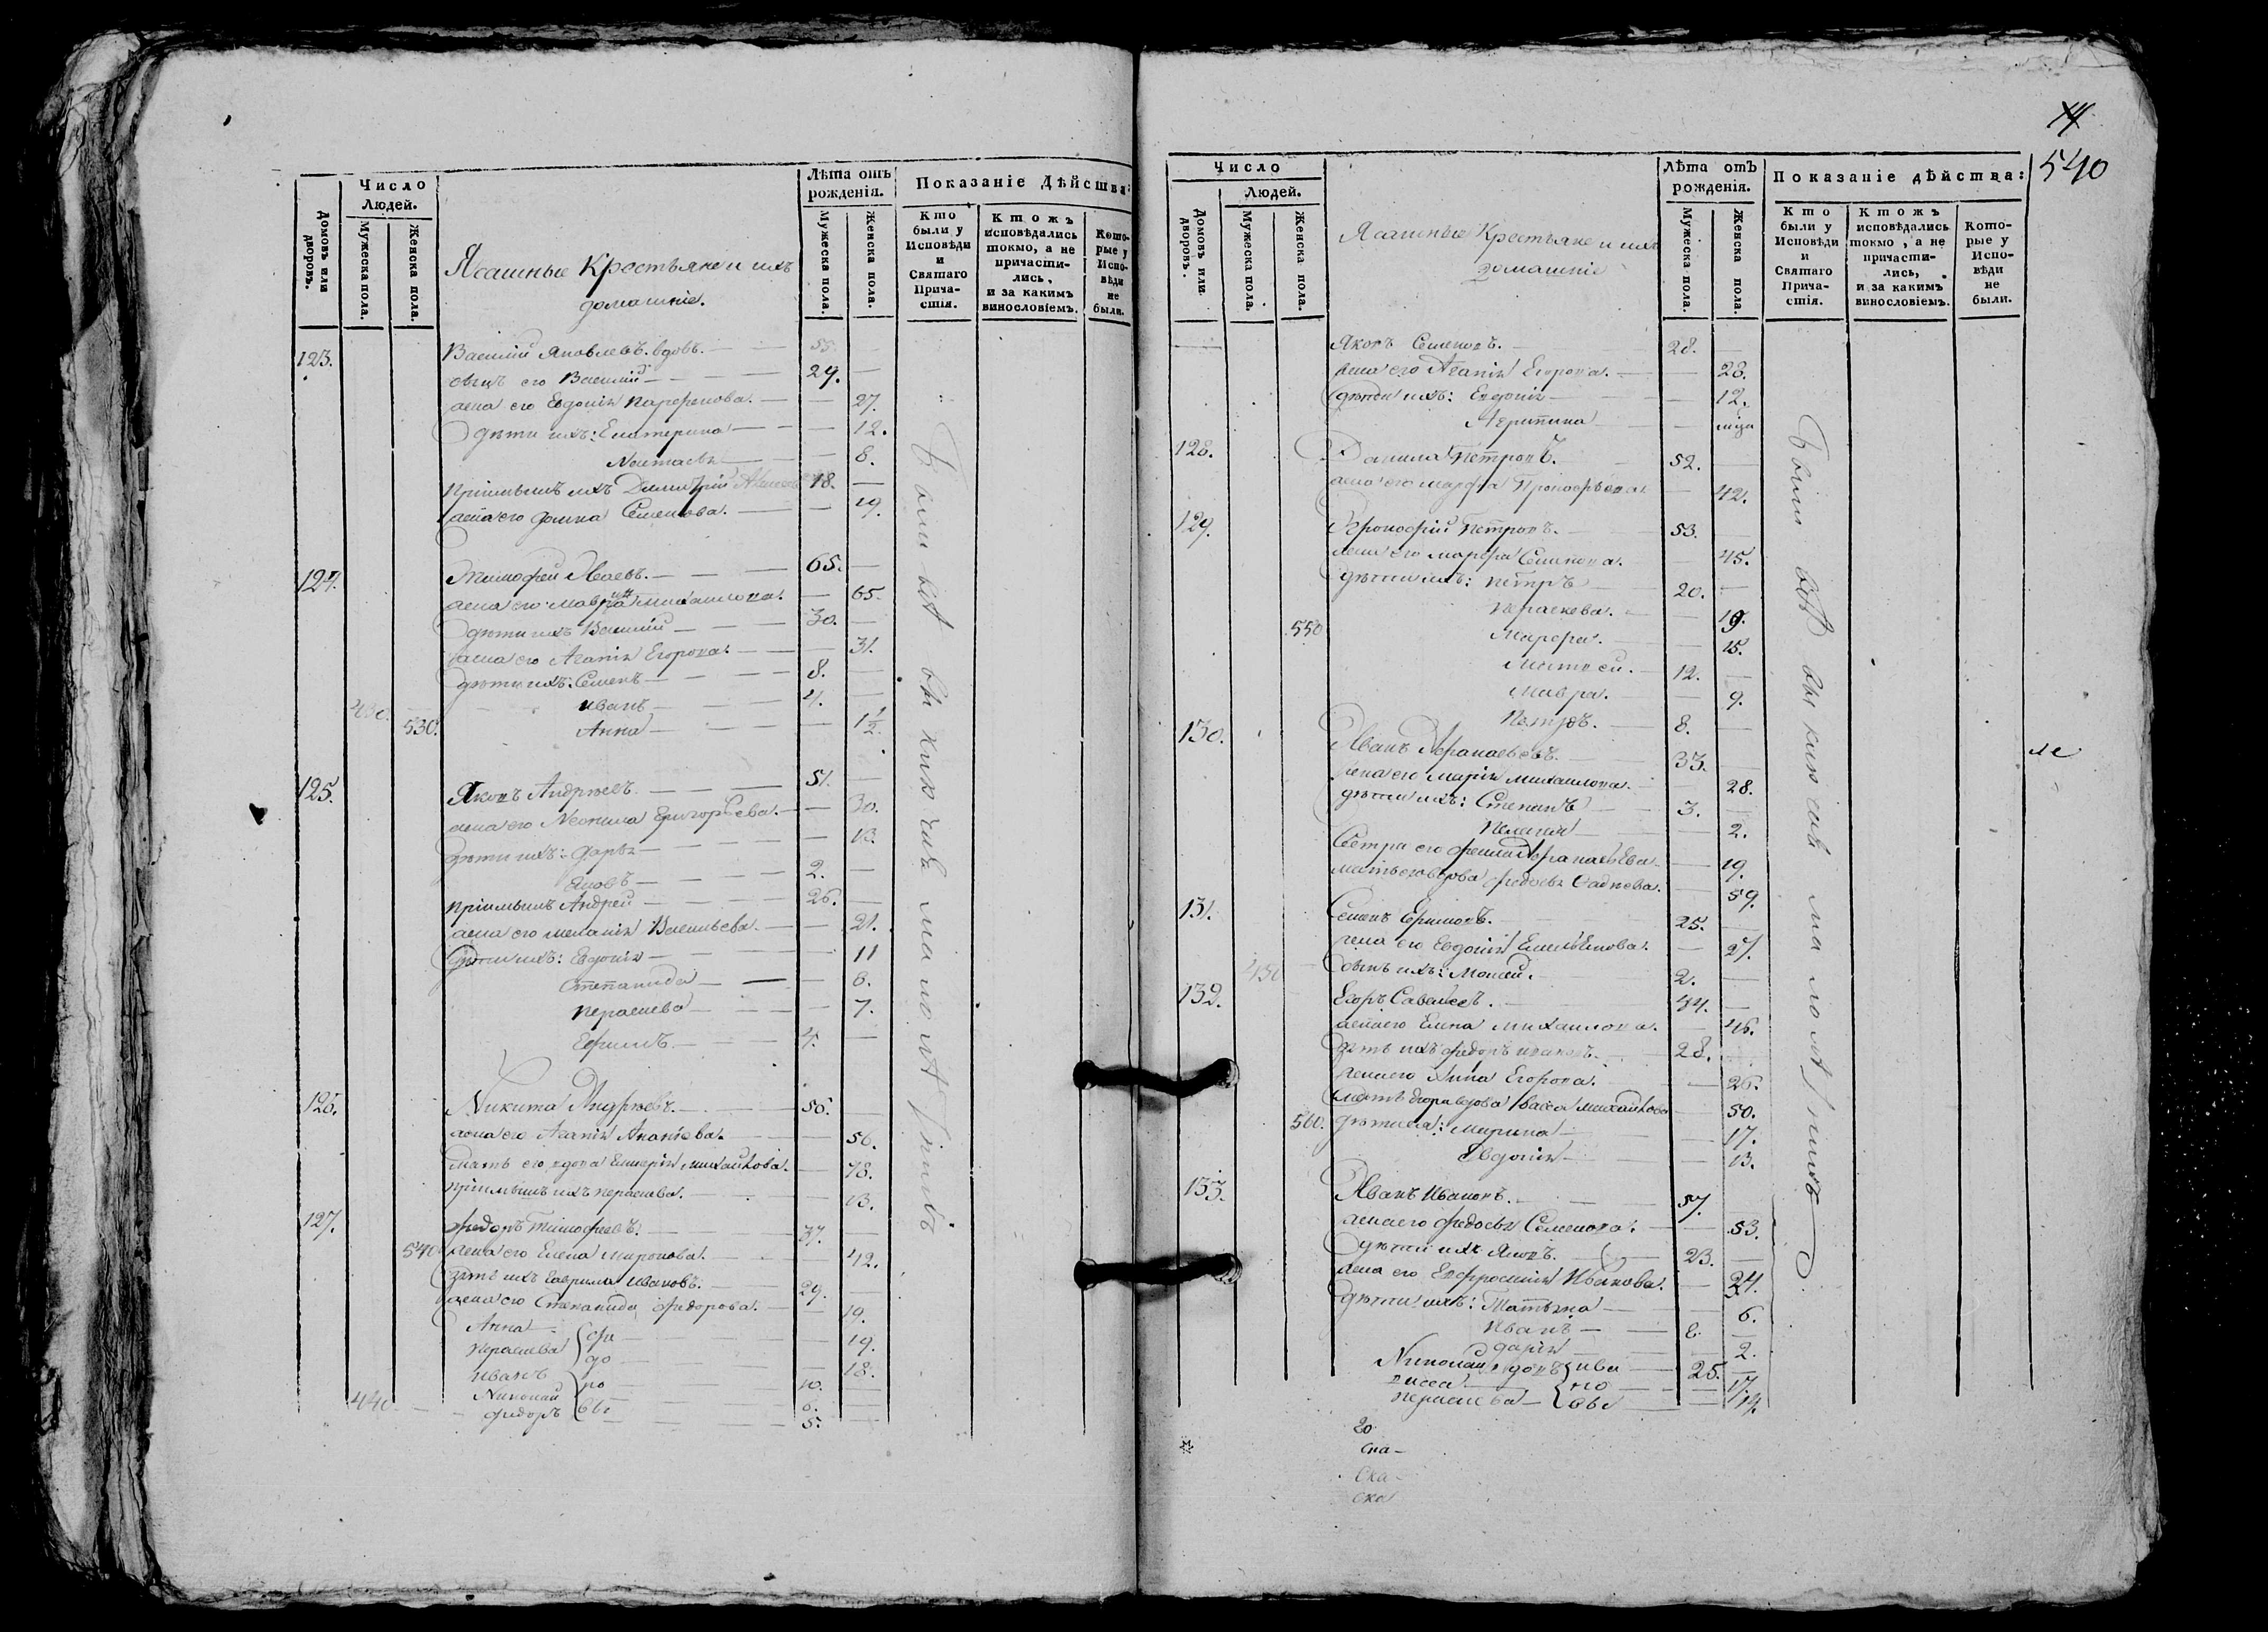 Число
Людей.
Домовъ или дворовъ.
Мужеска пола.
Женска пола.
Ясашные Крестьяне и ихъ
домашніе.
Лѣта отъ рожденія.
Мужеска пола.
Женска пола.
Показаніе Дѣйства:
Кто были у Исповѣди и Святаго Причастія.
Ктожъ исповѣдались токмо, а не причастились, и за какимъ винословіемъ.
Которые у Исповѣди не были.
123. Василий Яковлевъ. вдовъ. — 55. —
сынъ его Василий — 29. —
жена его Евдокія Парфенова. — — 27.
дѣти ихъ: Екатерина — — 12.
Настасья — — 8.
Пріимышъ ихъ Димитрій 18. —
жена его Домна Семенова. — — 19.
124. Тимофей — 65. —
жена его Мавра Михаилова. — 65.
дѣти ихъ Василий — 30. —
жена его Агапія Егорова. — — 31.
дѣти ихъ: Семенъ — 8. —
430. Иванъ — 4. —
530. Анна — — 1 1/2.
125. Яковъ Андреевъ. — 51. —
жена его Неонила Григорьева. — — 30.
дѣти ихъ: Дарья — — 13.
Яковъ — 2. —
Пріимышъ Андрей — 26. —
жена его Меланія Васильева. — — 21.
дѣти ихъ: Евдокія — — 11
Степанида — — 8.
Параскева — — 7.
Ефимъ. — 4. —
126. Никита Андреевъ. — 56. —
жена его Агапія Ананіева. — 56.
мать его вдова Михаилова. — 78.
пріимышъ ихъ Параскева. — — 13.
127. Федоръ Тимофеевъ. — 37. —
540 жена его Елена Миронова. — — 42.
зять ихъ Гаврила Ивановъ. — 29. —
жена его Степанида Федорова. — — 19.
Анна — — 19.
Параскева — — 18.
Иванъ — 10. —
Николай — 6.
440. Федоръ — 5.
Фи
до
ро
вы
Были всѣ
540
Число
Людей.
Домовъ или дворовъ.
Мужеска пола.
Женска пола.
Ясашные Крестьяне и ихъ
домашніе
Лѣта отъ рожденія.
Мужеска пола.
Женска пола.
Показаніе дѣйства:
Кто были у Исповѣди и Святаго Причастія.
Ктожъ исповѣдались токмо, а не причастились, и за какимъ винословіемъ.
Которые у Исповѣди не были.
Яковъ Семеновъ. — 28. —
жена его Агапія Егорова. — — 28.
дѣти ихъ: Евдокія — — 12.
Агрипина —
128. Данила Петровъ. 52. —
жена его Марфа Прокофьева — 42.
129. Прокофій Петровъ. 53. —
жена его Марфа Семенова. — 45.
дѣти ихъ: Петръ 20. —
Параскева. — — 19.
550 Марфа. — — 15.
Матвей. — 12. —
Мавра. — — 9.
Петръ. — 8. —
130. Иванъ Афанасьевъ. 33. —
жена его Марія Михаилова. — 28.
дѣти ихъ: Степанъ — 3. —
Пелагія — — 2.
Сестра его Афанасьева — — 19.
мать его вдова Федосья — 59.
131. Семенъ Ефимовъ. 25. —
жена его Евдокія Емельянова. — 27.
450 сынъ ихъ: Моисей. 2. —
132. Егоръ Савельевъ. 44. —
жена его Елена Михаилова. — 46.
зять ихъ Федоръ Ивановъ. — 28. —
жена его Анна Егорова. — 26.
вдова Васса Михаилова — 50.
560. дѣти ея: Марина — — 17.
Евдокія — — 13.
133. Иванъ Ивановъ. 57. —
жена его Федосья Семенова. — — 53.
дѣти ихъ Яковъ. — 23. —
жена его Евфросинія Иванова. — 24.
дѣти ихъ: Татьяна — — 6.
Иванъ — 6. —
Дарія — 2.
Николай вдовъ — 25. —
— 17.
Параскева — — 14.
ива
но
вы
Были всѣ